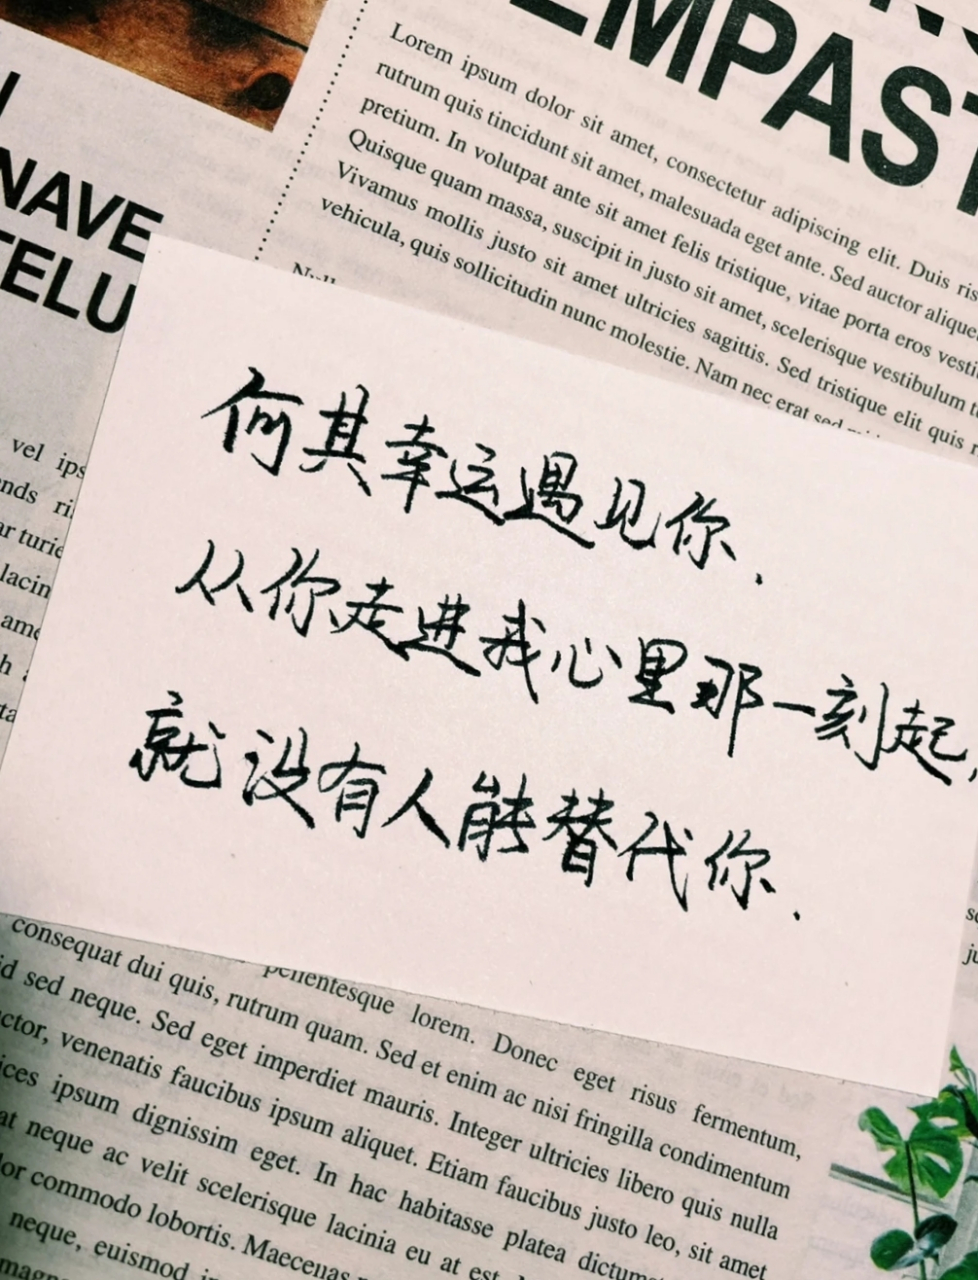 EMPAST
Lorem ipsum dolor sit amet, consectetur adipiscing elit. Duis ris
rutrum quis tincidunt sit amet, malesuada eget ante. Sed auctor alique
pretium. In volutpat ante sit amet felis tristique, vitae porta eros vesti
Quisque quam massa, suscipit in justo sit amet, scelerisque vestibulum
Vivamus mollis justo sit amet ultricies sagittis. Sed tristique elit quis
vehicula, quis sollicitudin nunc molestie. Nam nec erat sed
NAVE
TELU
vel ips
何其幸运遇见你.
从你走进我心里那一刻起,
就没有人能替代你.
consequat dui quis, rutrum quam. Sed et enim ac nisi fringilla condimentum
pellentesque lorem. Donec eget risus fermentum,
id sed neque. Sed eget imperdiet mauris. Integer ultricies libero quis nulla
ctor, venenatis faucibus ipsum aliquet. Etiam faucibus justo leo, sit amet
ices ipsum dignissim eget. In hac habitasse platea dictum
at neque ac velit scelerisque lacinia eu at est.
lor commodo lobortis. Maecenas
neque, euismod